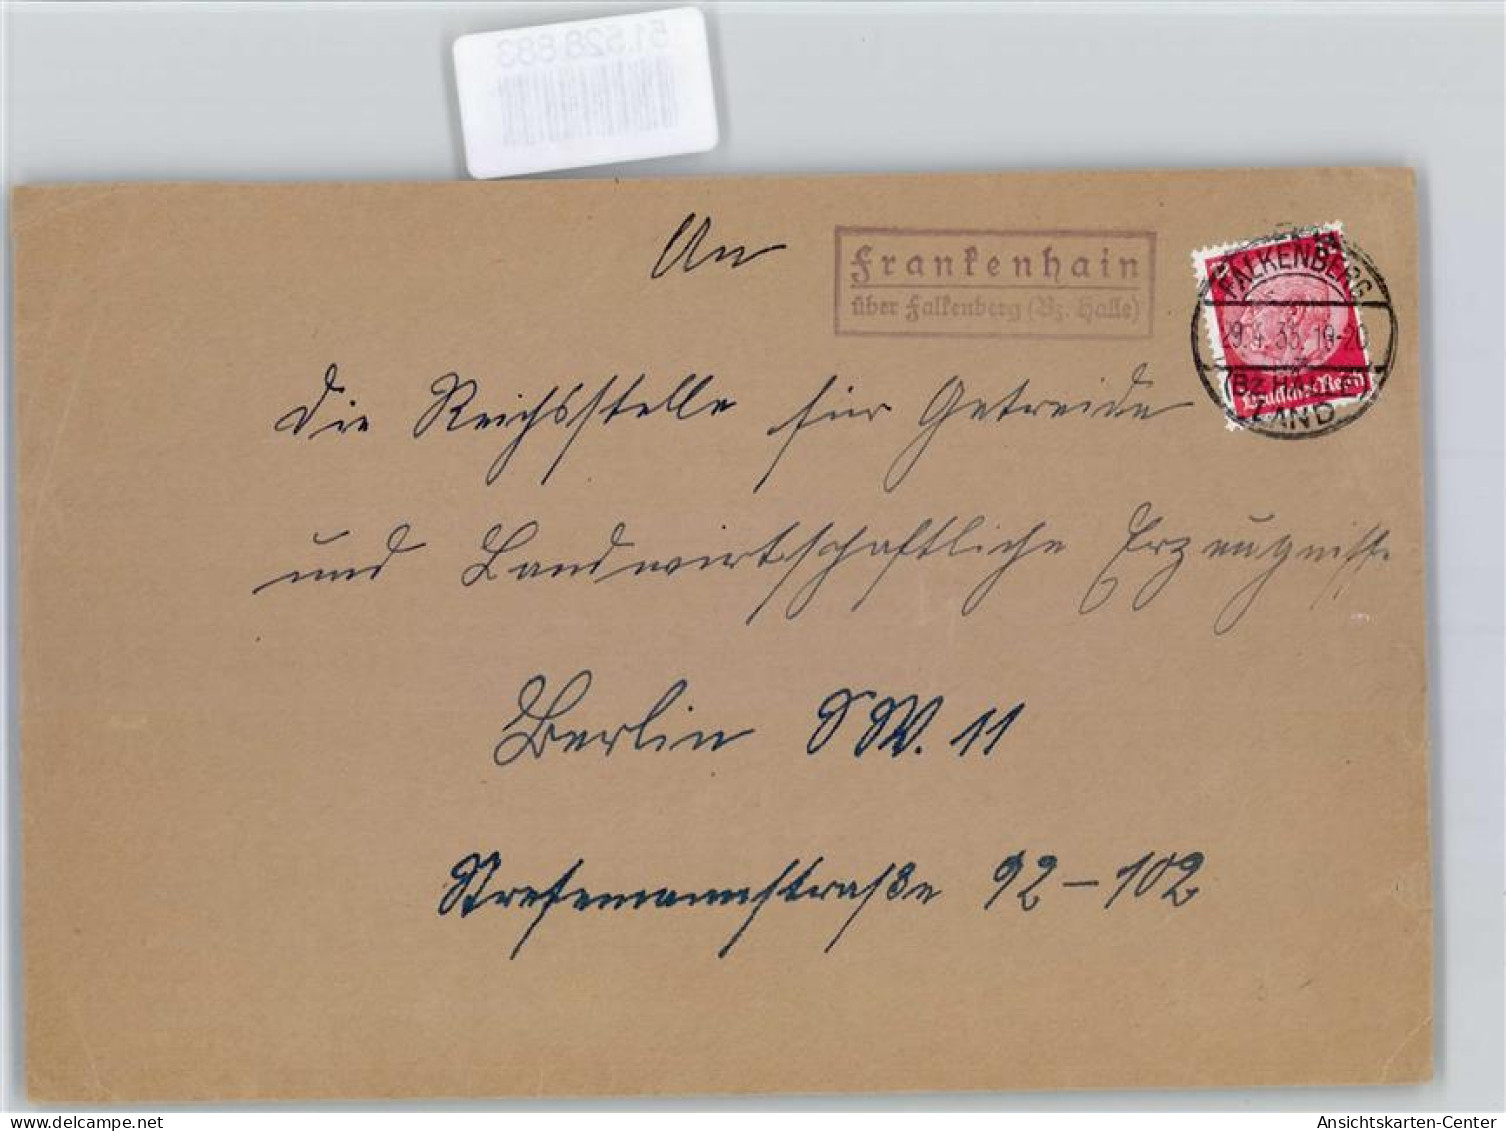 51.528.683
An
Frankenhain
über Falkenberg (Bz. Halle)
FALKENBERG
29.4.35.19-20
(Bz. HALLE)
LAND
Deutsches Reich
die Reichsstelle für Getreide
und Landwirtschaftliche Erzeugnisse
Berlin SW. 11
Stresemannstraße 92-102
www.delcampe.net
Ansichtskarten-Center